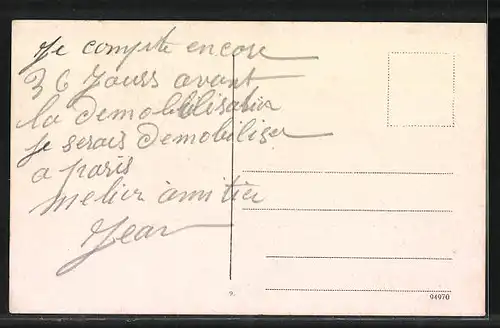 Je compte encore
36 Jours avant
la demobilisation
je serais demobiliser
a paris
melier amitier
Jean
9.
04070